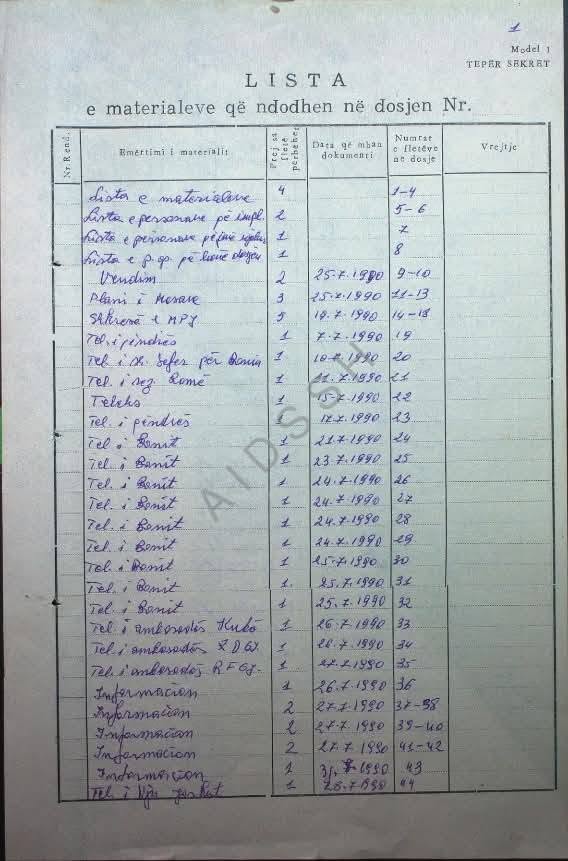 1
Model 1
TEPËR SEKRET
LISTA
e materialeve që ndodhen në dosjen Nr.
Nr. Rend. Emërtimi i materialit Prej sa fletë përbëhet Data që mban dokumenti Numrat e fletëve në dosje Vrejtje
Lista e materialeve 4 1-4
Lista e personave për impl. 2 5-6
Lista e personave 1 7
Lista e p.op. për 1 8
Vendim 2 25.7.1990 9-10
Plani i Masave 3 25.7.1990 11-13
Shkresë e MPJ 5 19.7.1990 14-18
Tel. i qëndrës 1 7.7.1990 19
Tel. i për 1 10.7.1990 20
Tel. i Romë 1 11.7.1990 21
Teleks 1 15.7.1990 22
Tel. i qëndrës 1 17.7.1990 23
Tel. i Bonit 1 21.7.1990 24
Tel. i Bonit 1 23.7.1990 25
Tel. i Bonit 1 24.7.1990 26
Tel. i Bonit 1 24.7.1990 27
Tel. i Bonit 1 24.7.1990 28
Tel. i Bonit 1 24.7.1990 29
Tel. i Bonit 1 25.7.1990 30
Tel. i Bonit 1 25.7.1990 31
Tel. i Bonit 1 25.7.1990 32
Tel. i ambasadës Kubë 1 26.7.1990 33
Tel. i ambasadës RDGJ 1 26.7.1990 34
Tel. i ambasadës RFGJ. 1 27.7.1990 35
Informacion 1 26.7.1990 36
Informacion 2 27.7.1990 37-38
Informacion 2 27.7.1990 39-40
Informacion 2 27.7.1990 41-42
Informacion 1 7.1990 43
Tel. i Nju Jorkut 1 28.7.1990 44
AIDSSH